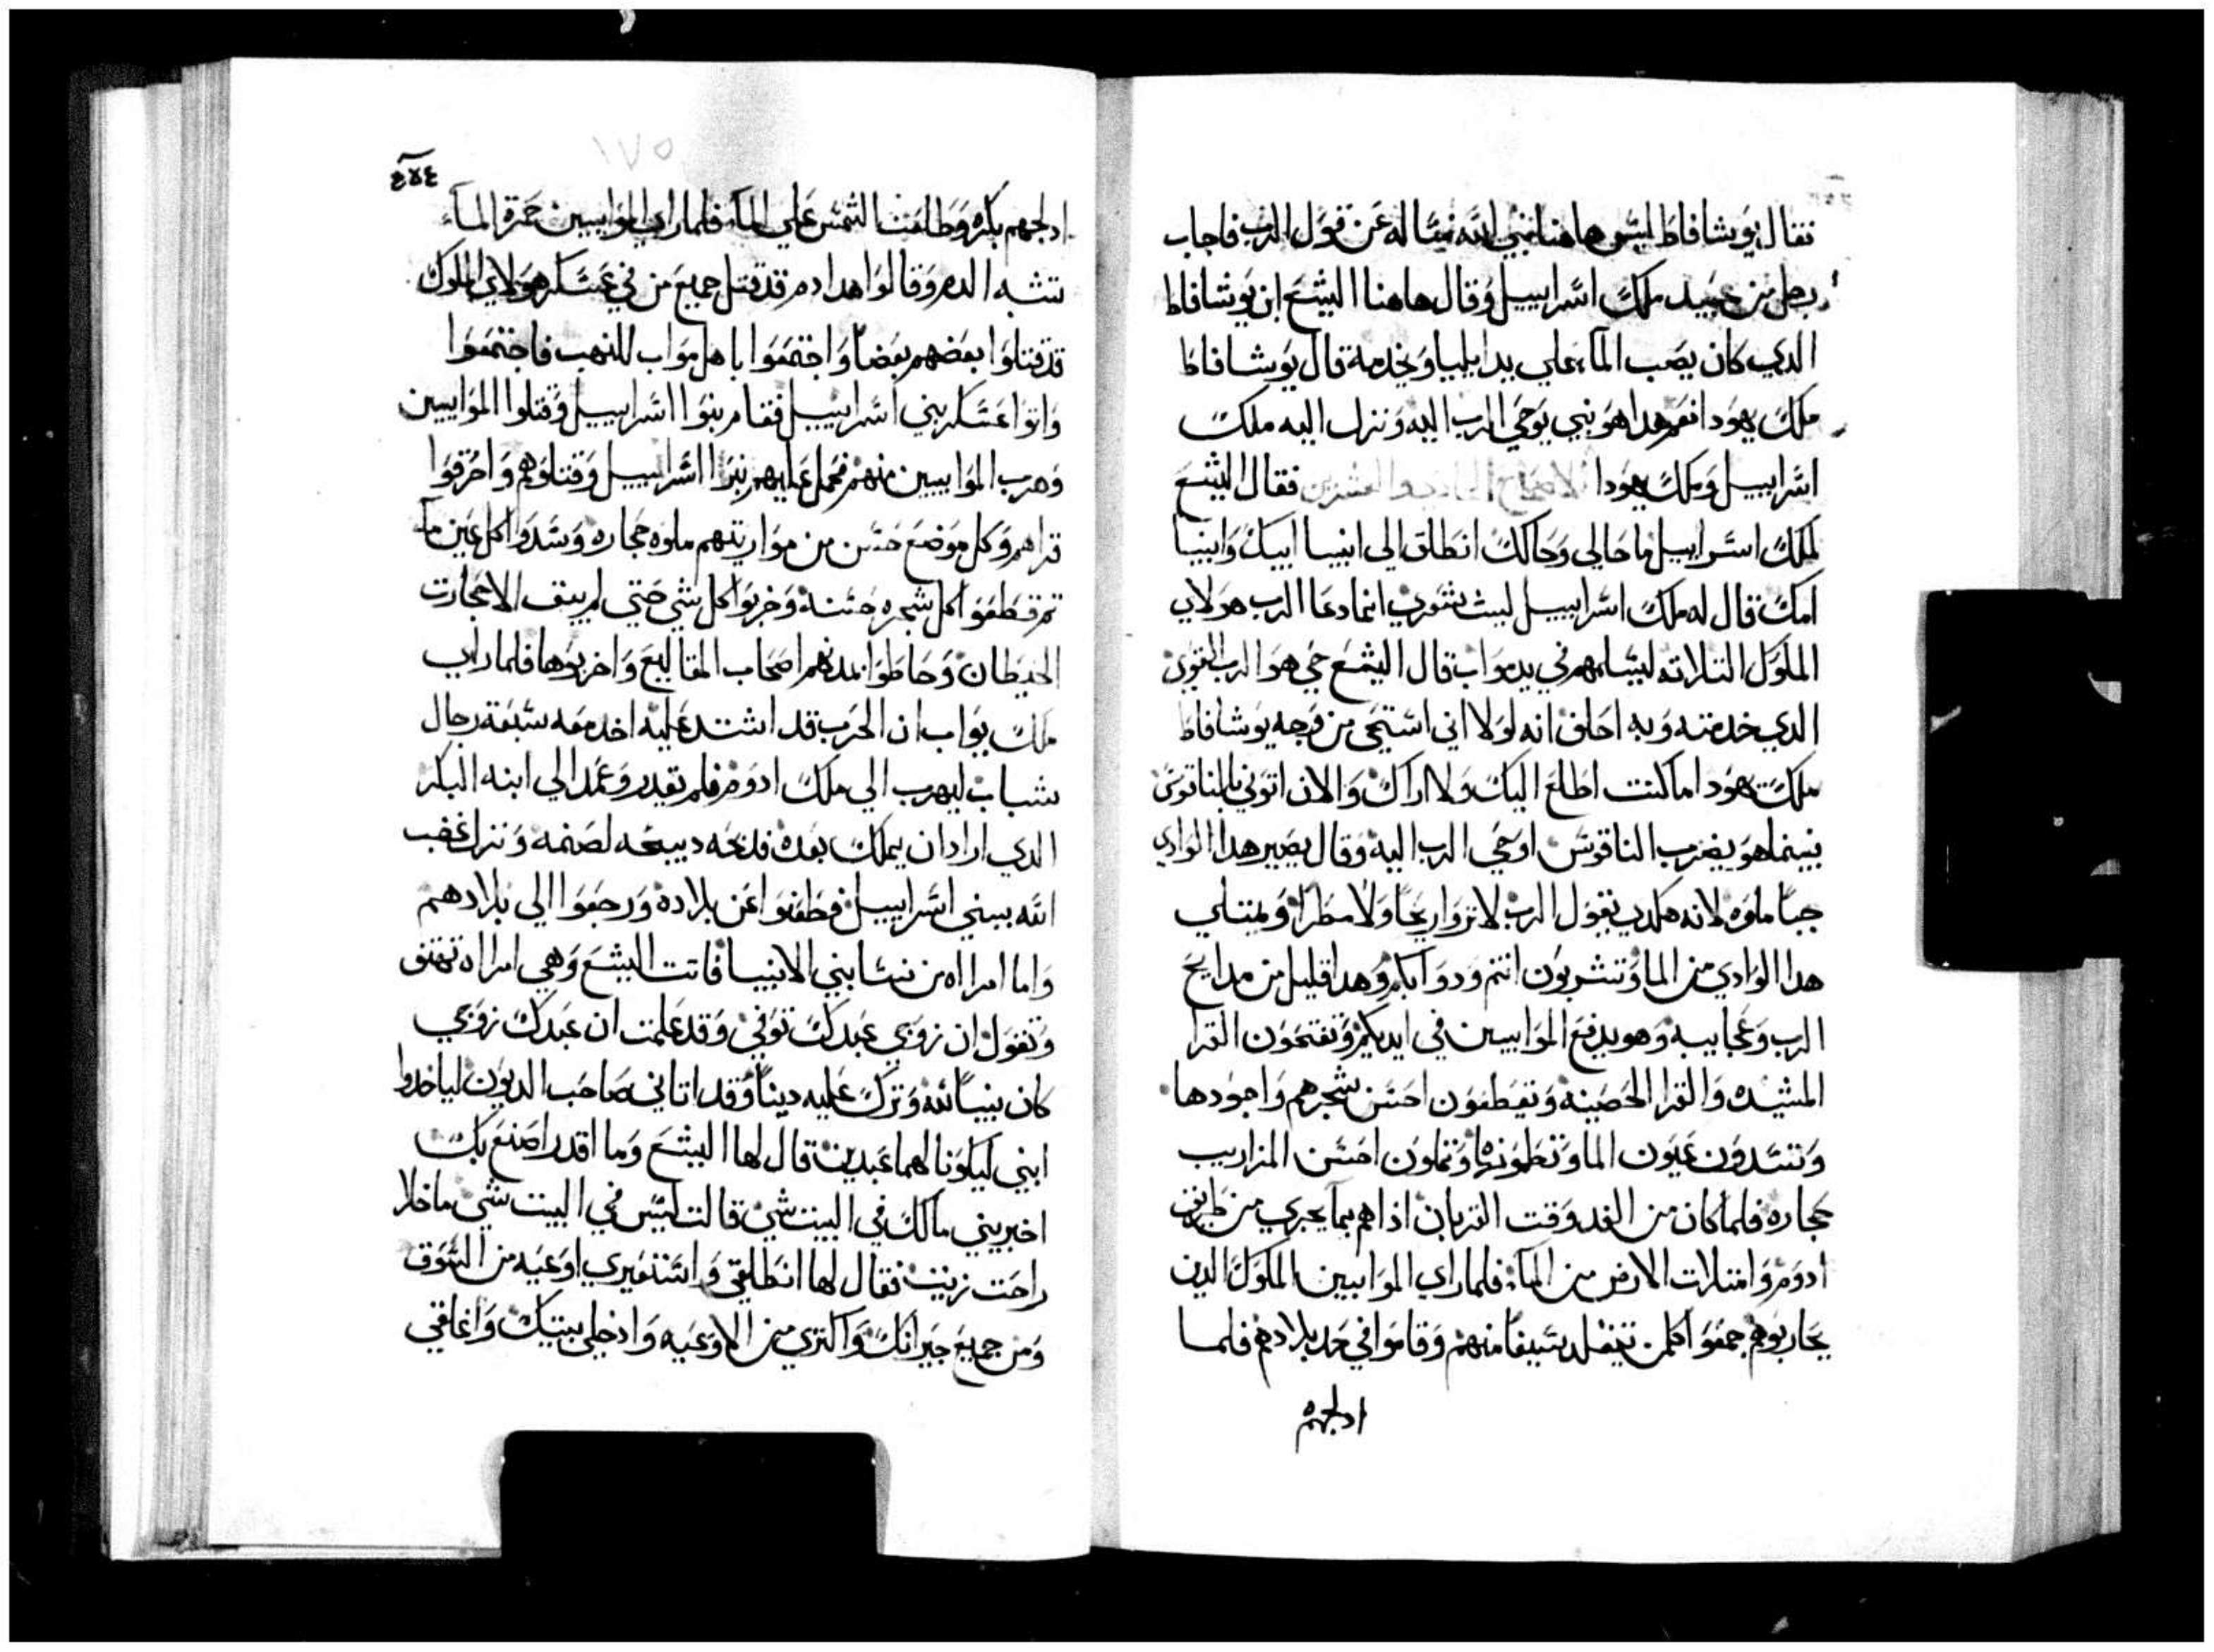 فقال يوشافاط ليس هاهنا نبي لله نساله عن قول الرب فاجاب
رجل من عبيد ملك اسراييل وقال هاهنا اليشع ابن يوشافاط
الدي كان يصب المآ علي يد ايليا ويخدمة قال يوشافاط
ملك يهودا نعم هدا هو نبي يوحي الرب اليه ونزل اليه ملك
اسراييل وملك يهودا الاصحاح الحادي والعشرين فقال اليشع
لملك اسراييل ما حالي وحالك انطلق الي انبيا ابيك وانبيا
امك قال له ملك اسراييل ليت شعري انما دعا الرب هولاي
الملوك التلاته ليسلمهم في يد مواب قال اليشع حي هو الرب القوي
الدي خدمته وبه احلف انه لولا اني استحي من وجه يوشافاط
ملك يهودا ما كنت اطلع اليك ولا اراك والان اتوني بالناقوس
بينما هو يضرب الناقوس اوحي الرب اليه وقال يصير هدا الوادي
جبا ملوه لانه هكدي يقول الرب لا تروا ريحا ولا مطرا ويمتلي
هدا الوادي من الما وتشربون انتم ودوابكم وهدا قليل من مدايح
الرب وعجايبه وهو يدفع الموابيين في ايديكم وتفتحون القرا
المشيده والقرا الحصينة وتقطعون احسن شجرهم واجودها
وتسدون عيون الما وتطمونها وتملون احسن المزاريب
حجاره فلما كان من الغد وقت القربان اذا هم بمآ يجري من طريق
ادوم وامتلات الارض من المآ فلما راي الموابيين الملوك الدين
يحاربوهم جمعوا كلمن تقلد سيفا منهم وقاموا في حد بلادهم فلما
ادلجهم
٤٥٤
١٧٥
ادلجهم بكره وطالعت الشمس علي المآ فلما راي الموابيين حمرة المآ
تشبه الدم وقالوا هدا دم قد قتل جميع من في عسكر هولاي الملوك
قد قتلوا بعضهم بعضا واجتمعوا يا اهل مواب للنهب فاجتمعوا
واتوا عسكر بني اسراييل فقام بنوا اسراييل وقتلوا الموابيين
وهرب الموابيين منهم فحمل عليهم بنوا اسراييل وقتلوهم واخرفوا
قراهم وكل موضع حسن من مواريتهم ملوه حجاره وسدوا كل عين مآ
تم قطعوا كل شجره حسنة وخربوا كل شي حتي لم يبق الا حجارت
الحيطان وحاطوا بمدنهم اصحاب المقاليع واخربوها فلما راي
ملك يواب ان الحرب قد اشتد عليه اخد معه سبعة رجال
شباب ليهرب الي ملك ادوم فلم يقدر وعمد الي ابنه البكر
الدي اراد ان يملك بعده فدبحه دبيحه لصنمه ونزل غضب
الله ببني اسراييل فطفوا عن بلاده ورجعوا الي بلادهم
واما امراه من نسا بني الانبيا فاتت اليشع وهي امراه تهتف
وتقول ان زوجي عبدك توفي وقد علمت ان عبدك زوجي
كان نبيا لله وترك عليه دينا وقد اتاني صاحب الديون لياخدوا
ابني ليكونا لهما عبدين قال لها اليشع وما اقدر اصنع بك
اخبريني ما لك في البيت شي قالت ليس في البيت شي ما خلا
راحت زيت فقال لها انطلقي واستعيري اوعيه من السوق
ومن جميع جيرانك واكتري من الاوعيه وادخلي بيتك واغلقي